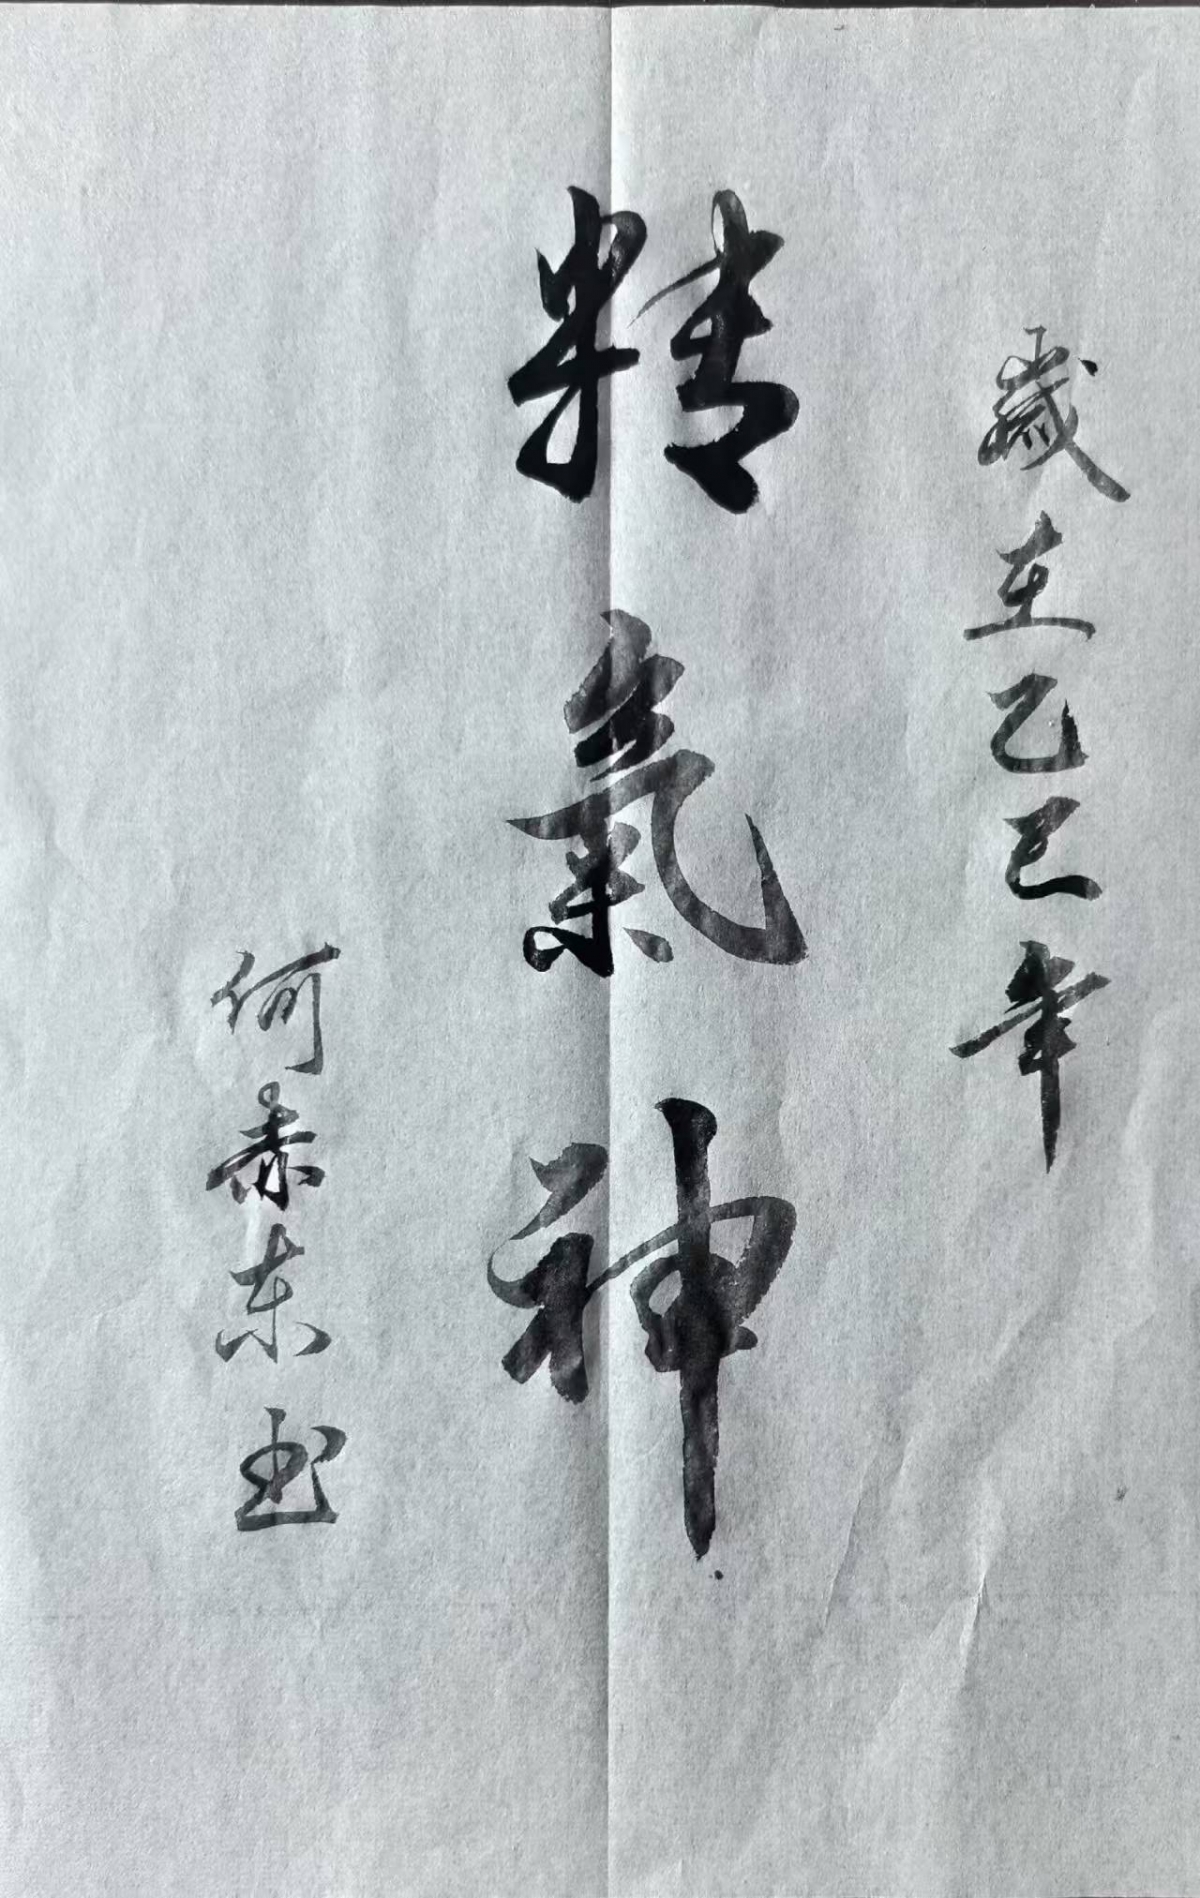 歲在乙巳年
精氣神
何赤东书